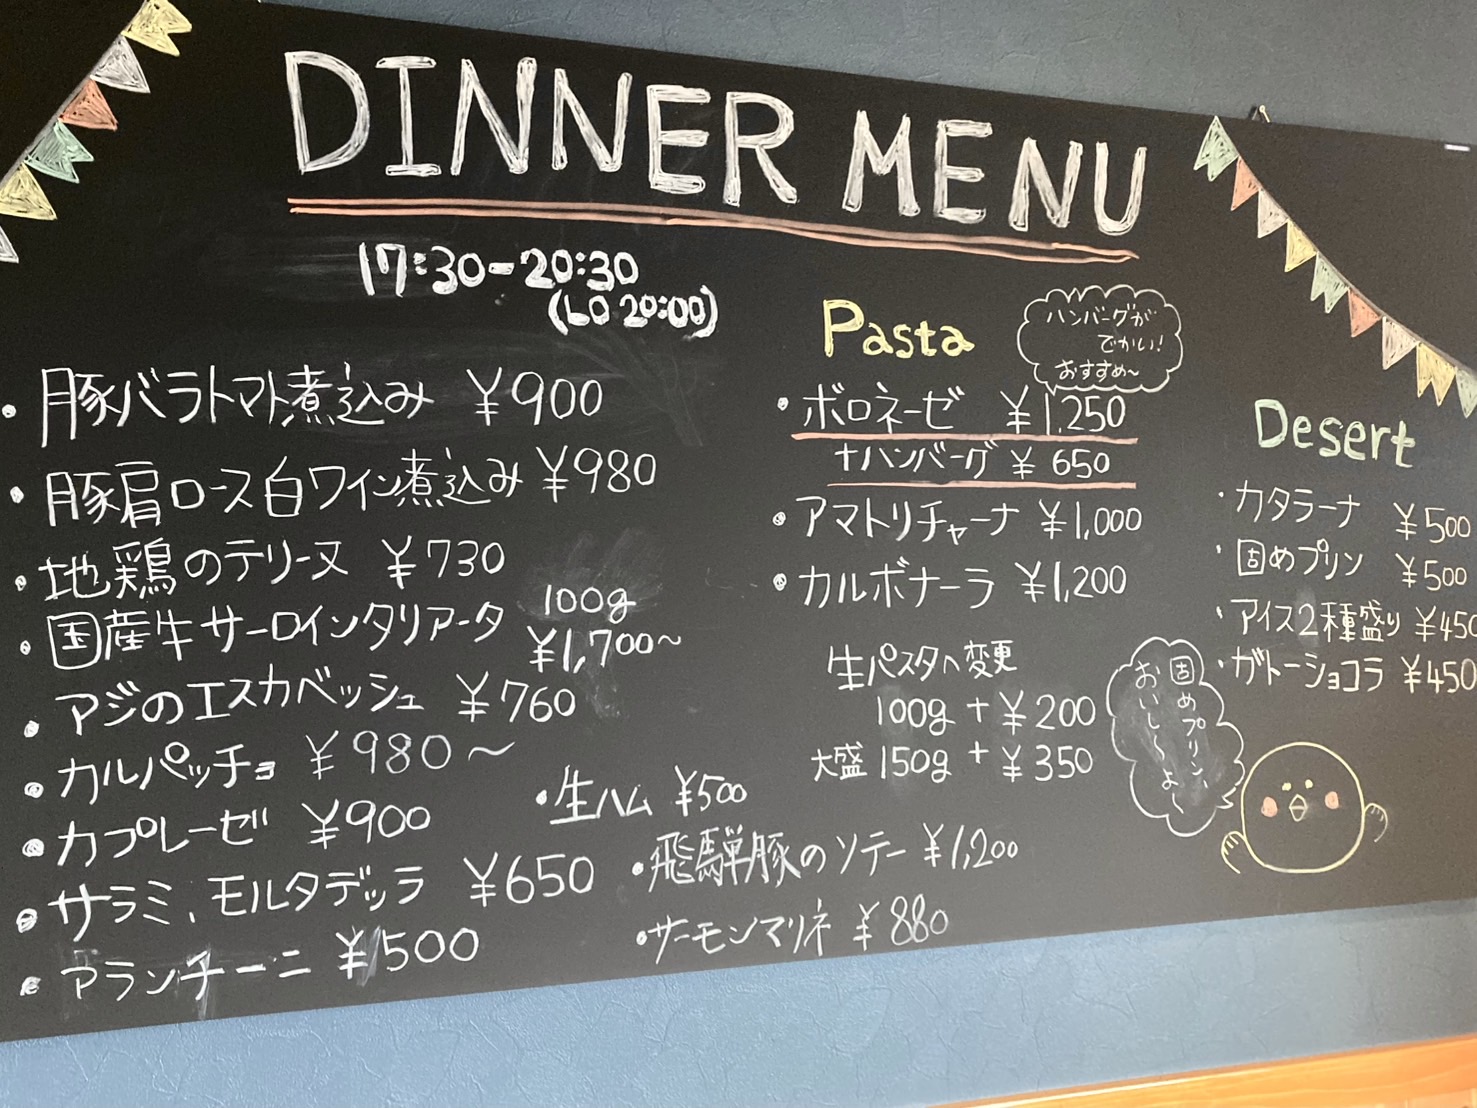 DINNER MENU
17:30-20:30
(LO 20:00)
・豚バラトマト煮込み ¥900
・豚肩ロース白ワイン煮込み ¥980
・地鶏のテリーヌ ¥730
・国産牛サーロインタリアータ 100g ¥1,700～
・アジのエスカベッシュ ¥760
・カルパッチョ ¥980～
・カプレーゼ ¥900
・サラミ、モルタデッラ ¥650
・アランチーニ ¥500
・生ハム ¥500
・飛騨豚のソテー ¥1,200
・サーモンマリネ ¥880
Pasta
ハンバーグが
でかい!
おすすめ～
・ボロネーゼ ¥1,250
+ハンバーグ ¥650
・アマトリチャーナ ¥1,000
・カルボナーラ ¥1,200
生パスタへ変更
100g +¥200
大盛150g +¥350
Desert
・カタラーナ ¥500
・固めプリン ¥500
・アイス2種盛り ¥450
・ガトーショコラ ¥450
固めプリン、
おいし～よ～